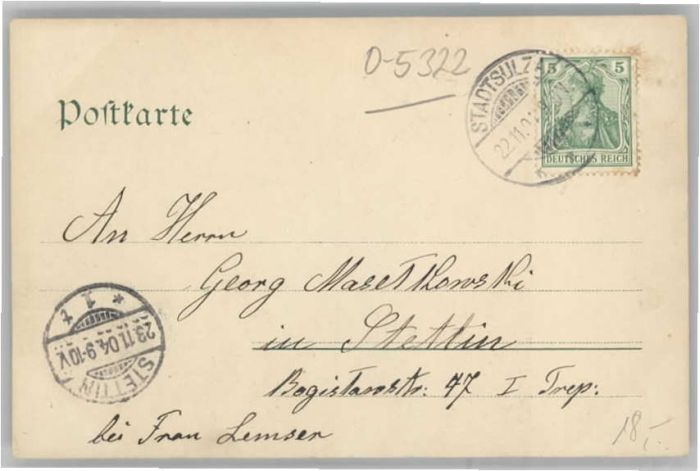 O-5322
Postkarte
STADTSULZA
22.11.0
5 5
DEUTSCHES REICH
An Herrn
Georg Masetkowski
in Stettin
Bogislavstr: 47 I Trep:
bei Frau Lemser
STETTIN
23.11.04.9-10V.
* 1 t
18,-